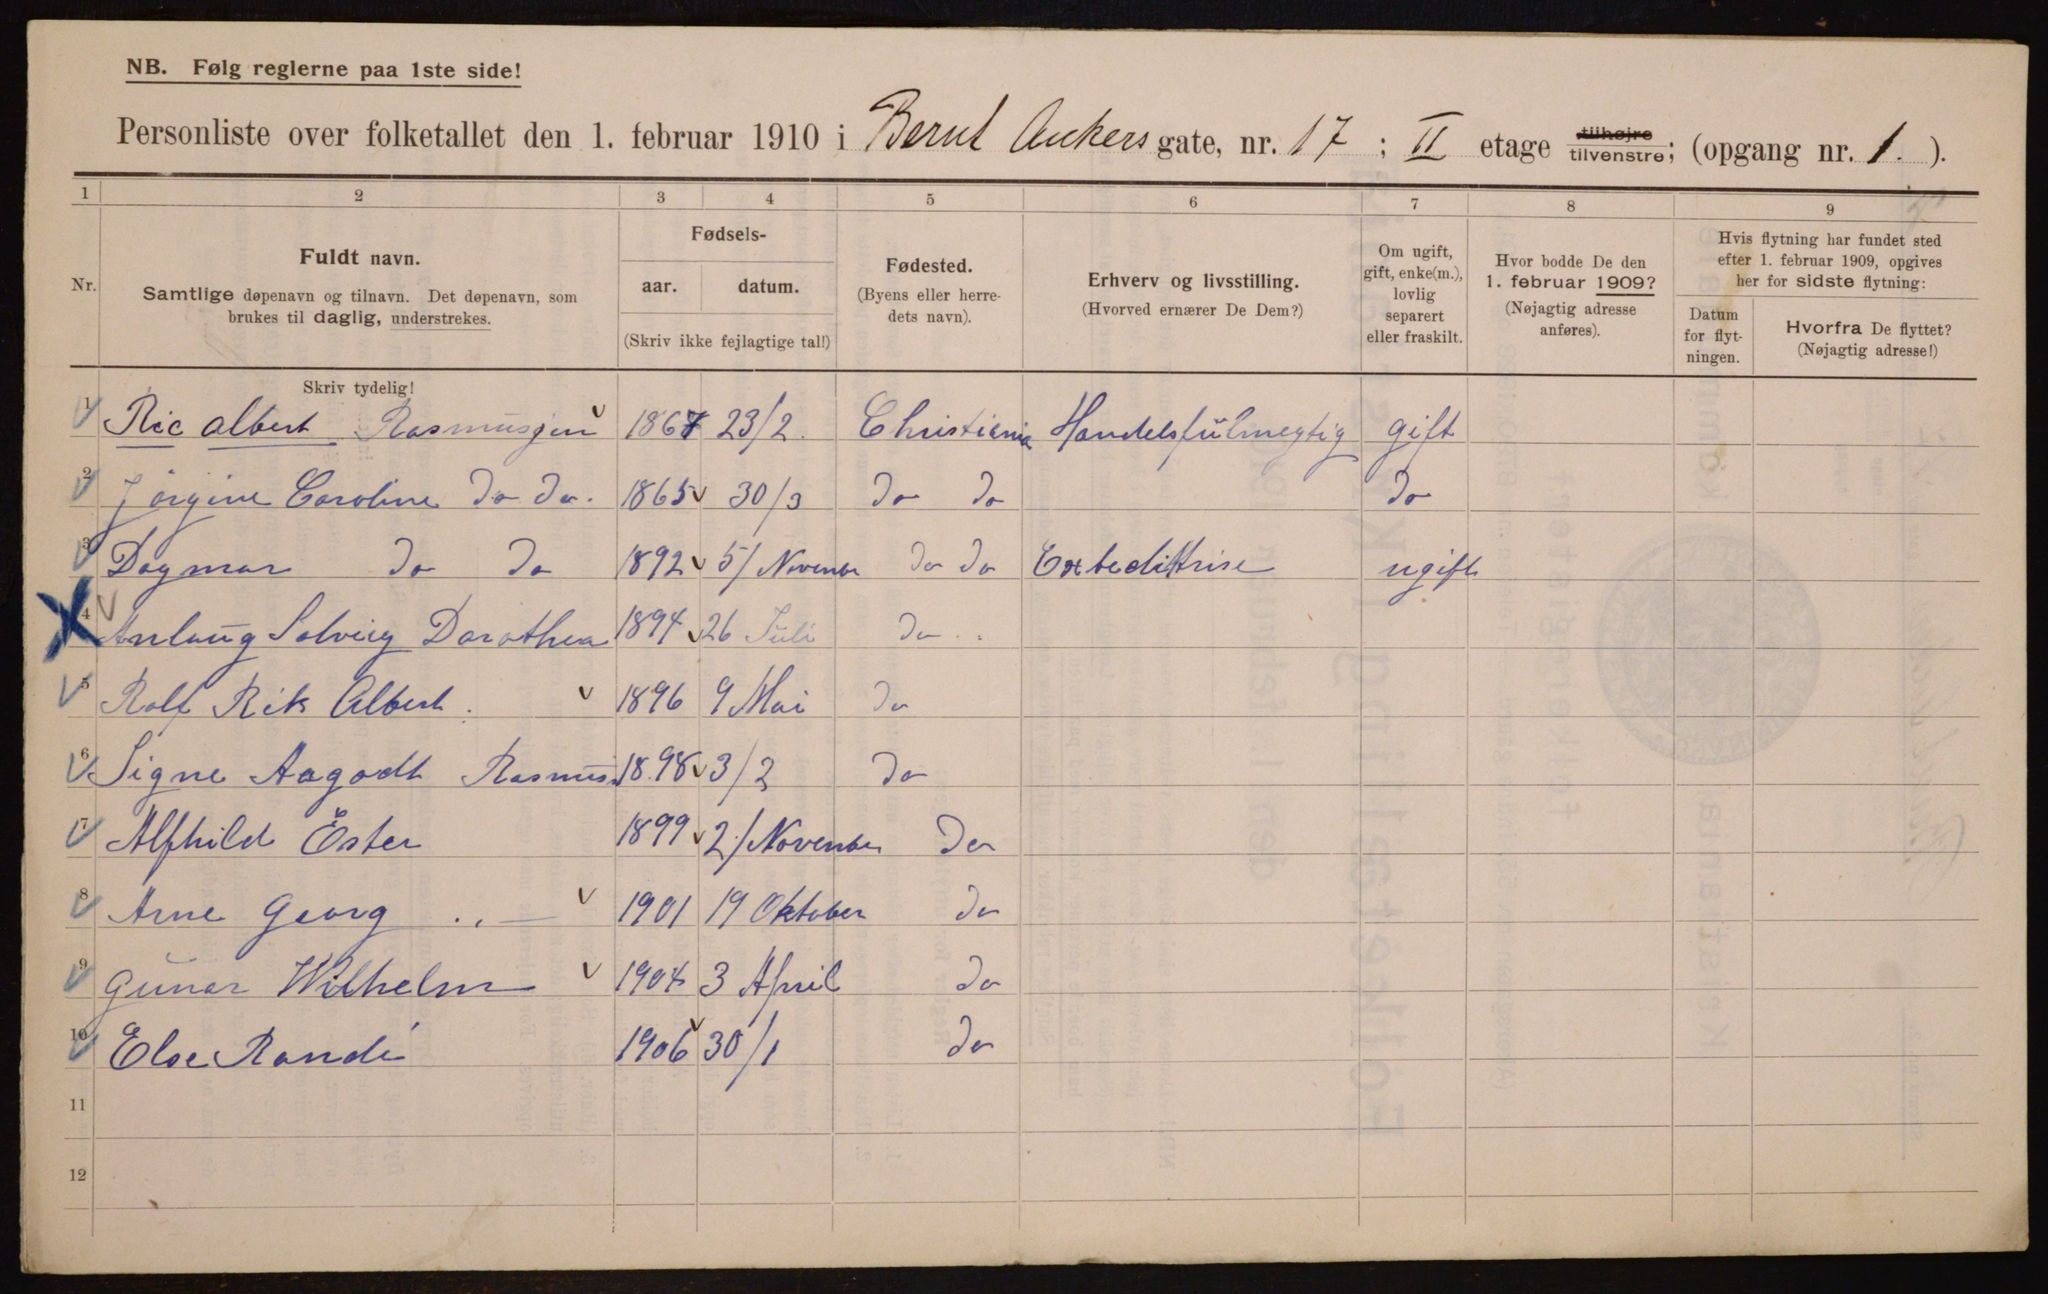 NB. Følg reglerne paa 1ste side!
Personliste over folketallet den 1. februar 1910 i Bernt Ankers gate, nr. 17 ; II etage tilhøjre tilvenstre; (opgang nr. 1. ).
1 2 3 4 5 6 7 8 9
Nr.
Fuldt navn.
Samtlige døpenavn og tilnavn. Det døpenavn, som
brukes til daglig, understrekes.
Fødsels-
aar. datum.
(Skriv ikke fejlagtige tal!)
Fødested.
(Byens eller herre-
dets navn).
Erhverv og livsstilling.
(Hvorved ernærer De Dem?)
Om ugift,
gift, enke(m.),
lovlig
separert
eller fraskilt.
Hvor bodde De den
1. februar 1909?
(Nøjagtig adresse
anføres).
Hvis flytning har fundet sted
efter 1. februar 1909, opgives
her for sidste flytning:
Datum
for flyt-
ningen.
Hvorfra De flyttet?
(Nøjagtig adresse!)
Skriv tydelig!
1 Ric Albert Rasmussen 1867 23/2. Christiania Handelsfülmegtig gift
2 Jørgine Caroline do do. 1865 30/3 do do do
3 Dagmar do do 1892 5/November do do ugift
4 Solveig Dorothea 1894 26 Juli do
5 Rolf Rik Albert. 1896 9 Mai do
6 Signe Aagodt Rasmus 1898 3/2 do
7 Alfhild Ester 1899 2/November do
8 Arne Georg 1901 19 Oktober do
9 Gunar Wilhelm 1904 3 April do
10 Else Randi 1906 30/1 do
11
12